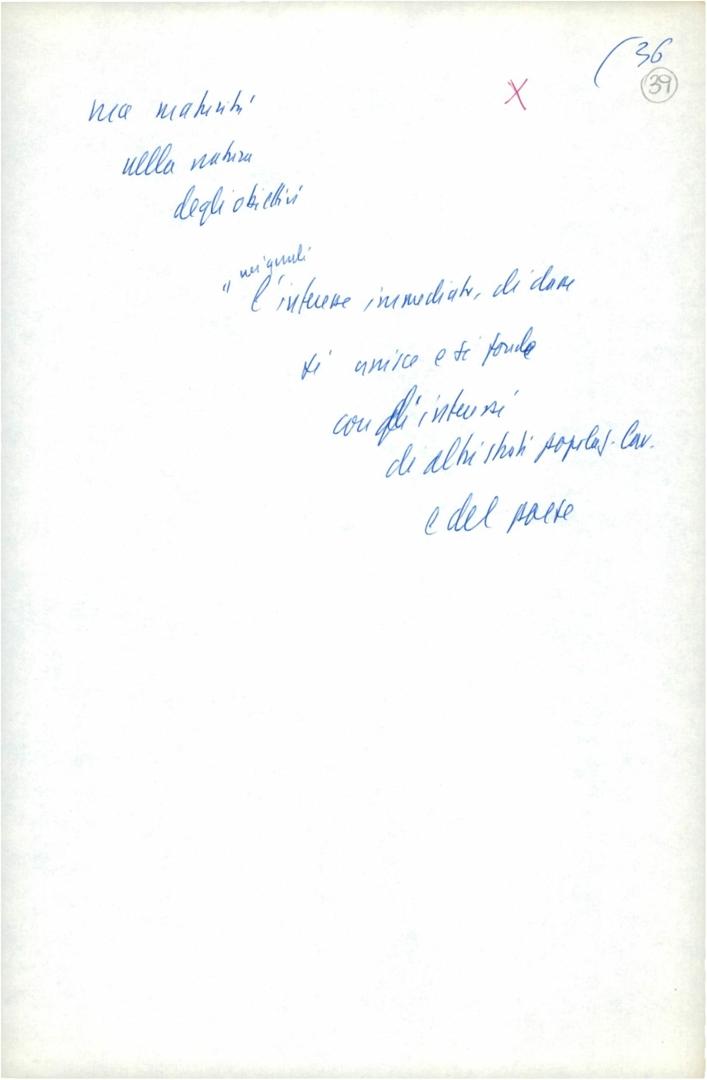 (36
39
X
ma maturità
nella natura
degli obiettivi
" nei quali
l'interesse immediato, di classe
si unisce e si fonde
con gli interessi
di altri strati popolari. lav.
e del paese